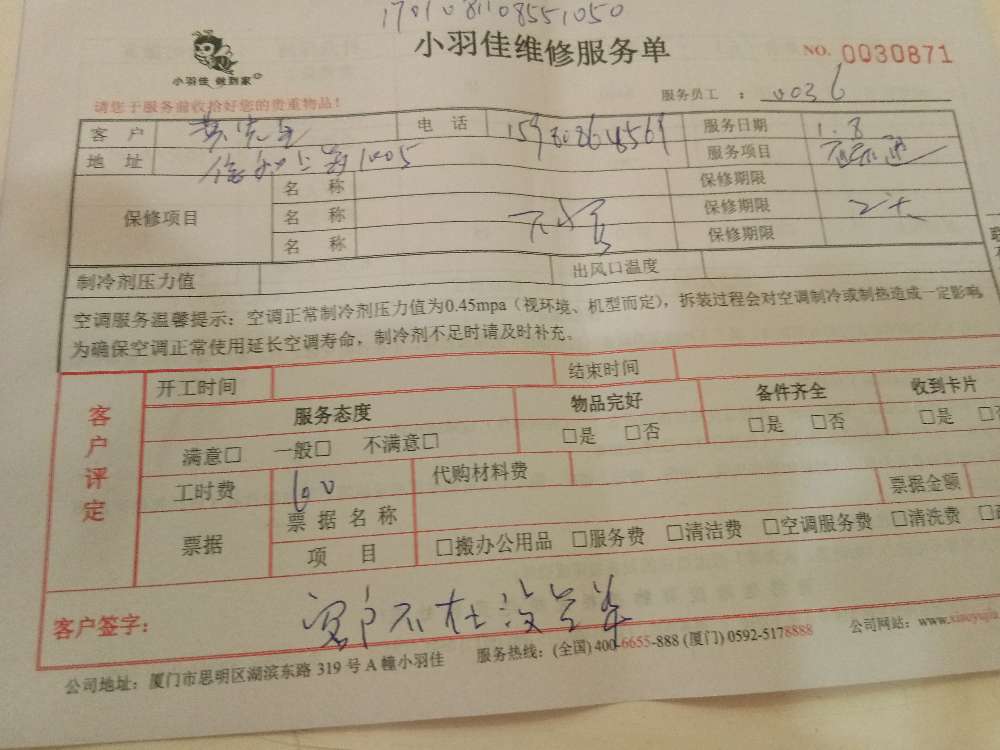 1701081108551050
小羽佳维修服务单
NO. 0030871
小羽佳 做到家
请您于服务前收拾好您的贵重物品！
服务员工 ： 0036
客 户 电 话 服务日期 1.8
地 址 1005 服务项目
保修项目 名 称 保修期限
名 称 保修期限 2天
名 称 保修期限
制冷剂压力值 出风口温度
空调服务温馨提示：空调正常制冷剂压力值为0.45mpa（视环境、机型而定），拆装过程会对空调制冷或制热造成一定影响
为确保空调正常使用延长空调寿命，制冷剂不足时请及时补充。
客户评定
开工时间 结束时间
服务态度 物品完好 备件齐全 收到卡片
满意□ 一般□ 不满意□ □是 □否 □是 □否 □是
工时费 60 代购材料费
票据 票据名称 票据金额
项 目 □搬办公用品 □服务费 □清洁费 □空调服务费 □清洗费
客户签字： 客户不在没签单
公司地址：厦门市思明区湖滨东路 319 号 A 幢小羽佳 服务热线：(全国) 400-6655-888 (厦门) 0592-5178888 公司网站：www.xiaoyujia